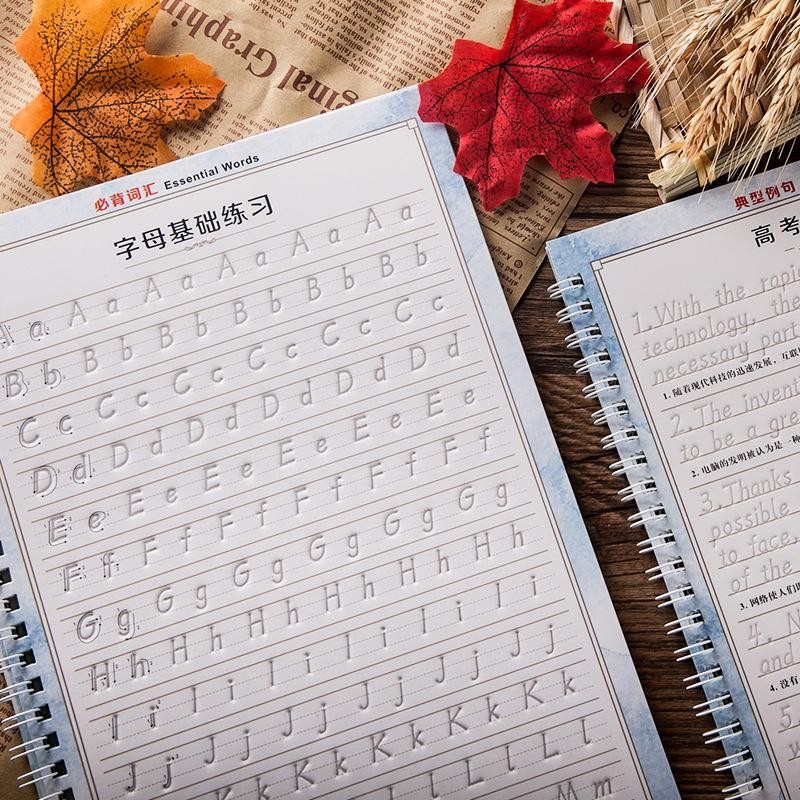 Original Graphin
必背词汇 Essential Words
字母基础练习
A a A a A a A a A a A a
B b B b B b B b B b B b
C c C c C c C c C c C c
D d D d D d D d D d D d
E e E e E e E e E e E e
F f F f F f F f F f F f
G g G g G g G g G g G g
H h H h H h H h H h H h
I i I i I i I i I i I i
J j J j J j J j J j J j
K k K k K k K k
L l L l L l
M m
典型例句
高考
1. With the rapi
technology, the
necessary part
1. 随着现代科技的迅速发展，互联
2. The invent
to be a gre
2. 电脑的发明被认为是一种
3. Thanks
possible
to face.
of the
3. 网络使人们
4. N
and
4. 没有
5.